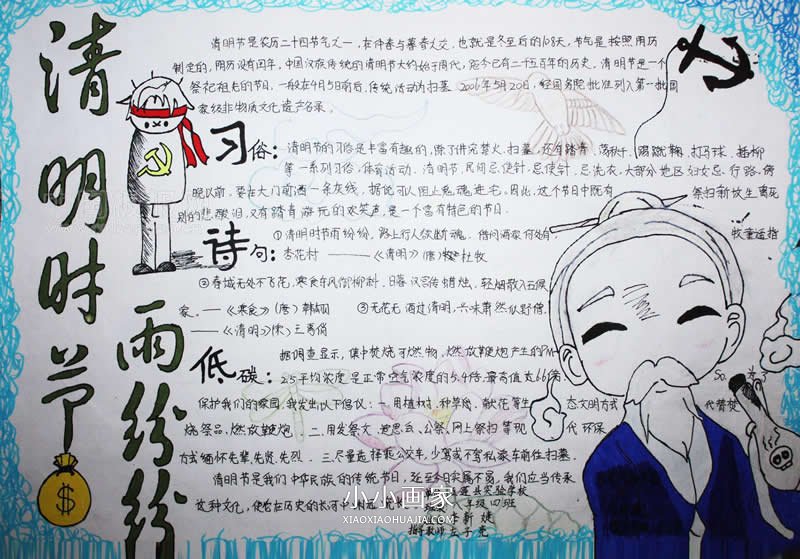 清明时节
雨纷纷
清明节是农历二十四节气之一，在仲春与暮春之交，也就是冬至后的108天，节气是按照阳历
制定的，阴历没有闰年，中国汉族传统的清明节大约始于周代，距今已有二千五百年的历史。清明节是一个
祭祀祖先的节日，一般在4月5日前后，传统活动为扫墓。2006年5月20日，经国务院批准列入第一批国
家级非物质文化遗产名录。
习俗：清明节的习俗是丰富有趣的，除了讲究禁火、扫墓，还有踏青、荡秋千、踢蹴鞠、打马球、插柳
等一系列习俗，体育活动。清明节，民间忌使针，忌洗衣，大部分地区妇女忌行路。傍
晚以前，要在大门前洒一条灰线，据说可以阻止鬼魂进宅。因此，这个节日中既有祭扫新坟生离死
别的悲酸泪，又有踏青游玩的欢笑声，是一个富有特色的节日。
诗句：①清明时节雨纷纷，路上行人欲断魂。借问酒家何处有，牧童遥指
杏花村 ——《清明》(唐) 杜牧
②春城无处不飞花，寒食东风御柳斜。日暮汉宫传蜡烛，轻烟散入五侯
家。——《寒食》(唐) 韩翃 ③无花无酒过清明，兴味萧然似野僧。
——《清明》(宋) 王禹偁
低碳：据调查显示，集中焚烧可燃物，燃放鞭炮产生的PM
2.5平均浓度是正常空气浓度的5.4倍，最高值达6.6倍。So, 为了
保护我们的家园，我发出以下倡议：一、用植树、种草、献花等生态文明方式代替焚
烧祭品、燃放鞭炮 二、用发祭文、追思会、公祭、网上祭扫等现代环保
方式缅怀先辈、先贤、先烈。三、尽量选择乘公交车，少驾或不驾私家车前往扫墓。
清明节是我们中华民族的传统节日，延至今日实属不易，我们应当传承
这种文化，使它在历史的长河中
县实验学校
年级四班
指导教师
$
小小画家
XIAOXIAOHUAJIA.COM